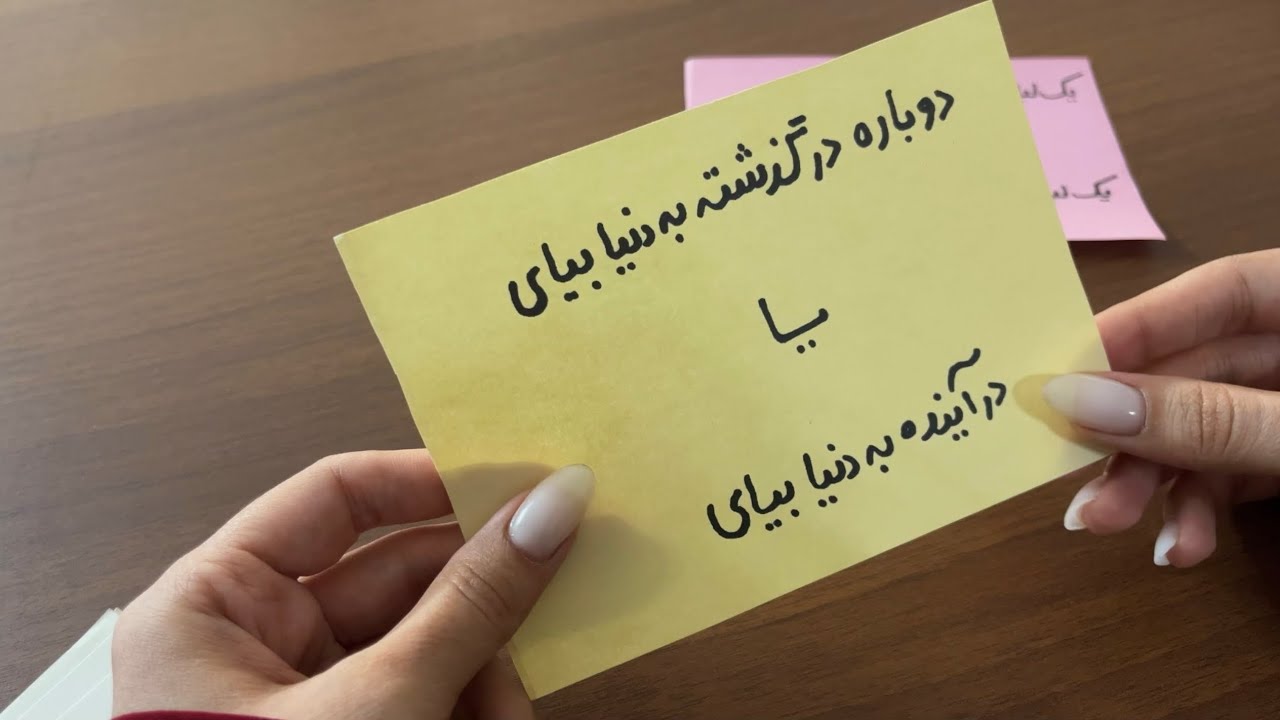 دوباره در گذشته به دنیا بیای
یا
در آینده به دنیا بیای
یک
یک